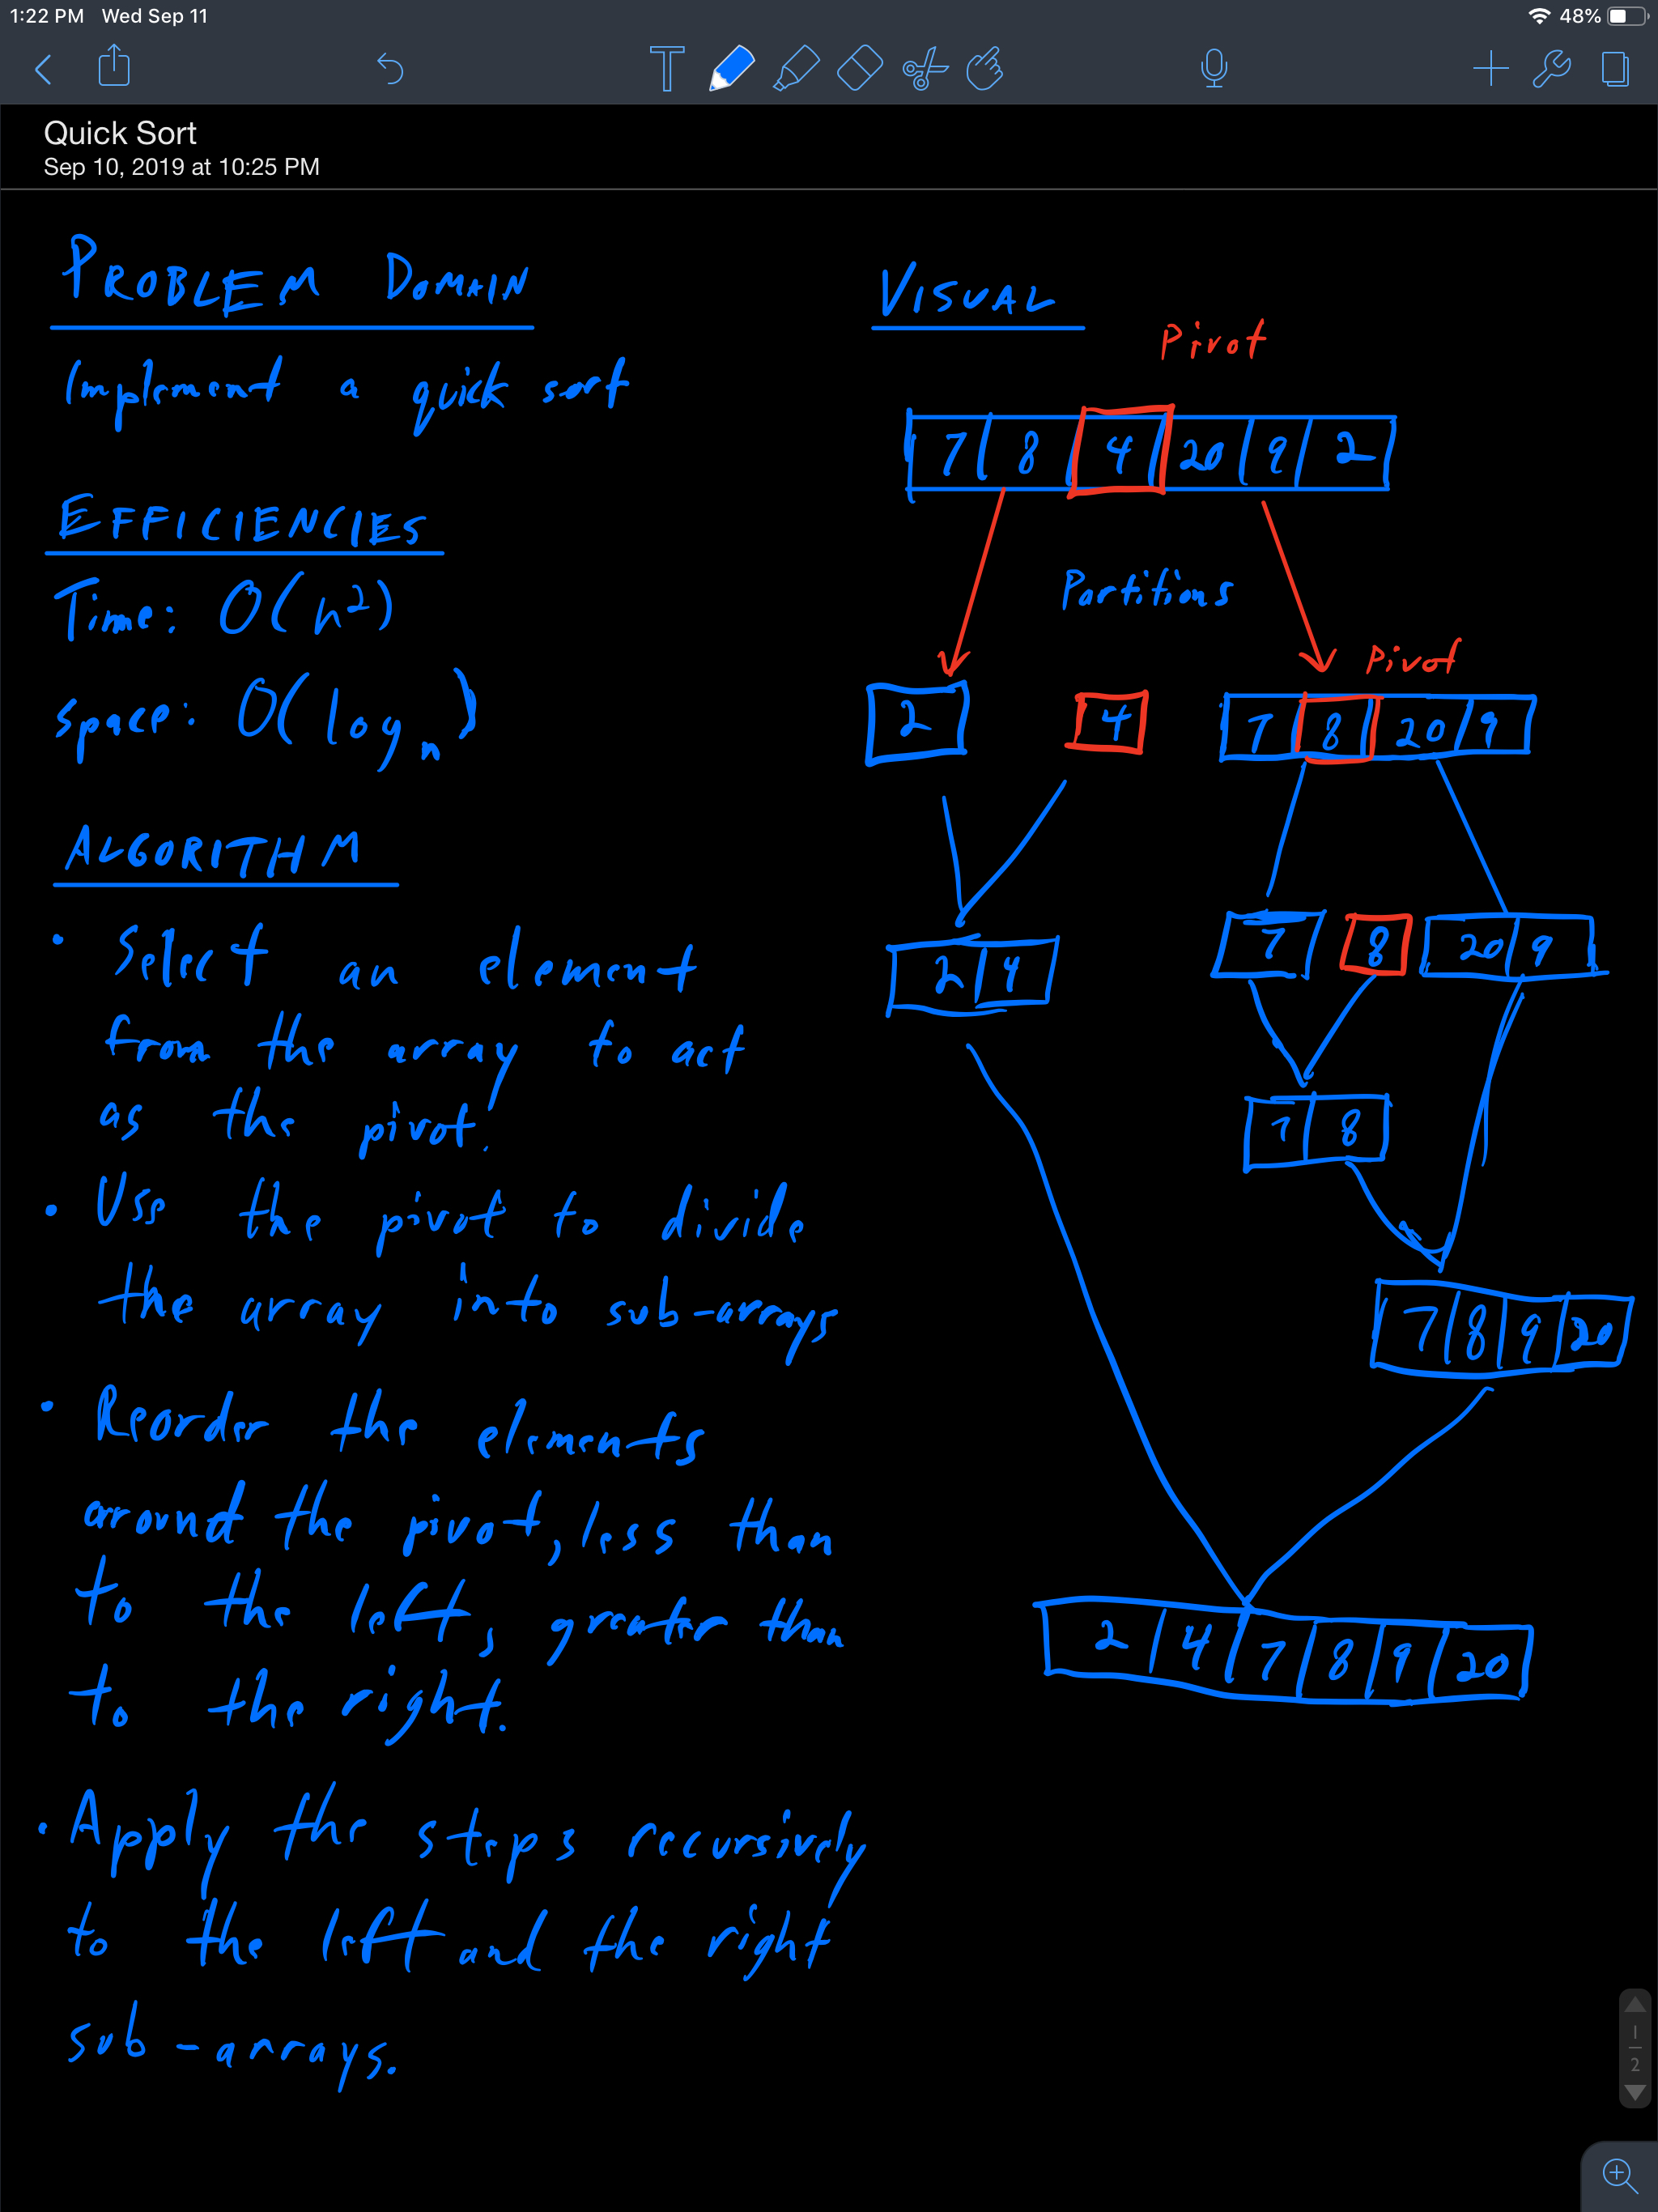 1:22 PM Wed Sep 11
48%
T
Quick Sort
Sep 10, 2019 at 10:25 PM
PROBLEM DOMAIN
Implement a quick sort
EFFICIENCIES
Time: O(n²)
space: O(log n)
ALGORITHM
• Select an element
from the array to act
as the pivot.
• Use the pivot to divide
the array into sub-arrays
• Reorder the elements
around the pivot, less than
to the left, greater than
to the right.
• Apply the steps recursively
to the left and the right
sub-arrays.
VISUAL
Pivot
7 8 4 20 9 2
Partitions
Pivot
2 4 7 8 20 9
2 4 7 8 20 9
7 8
7 8 9 20
2 4 7 8 9 20
1
2